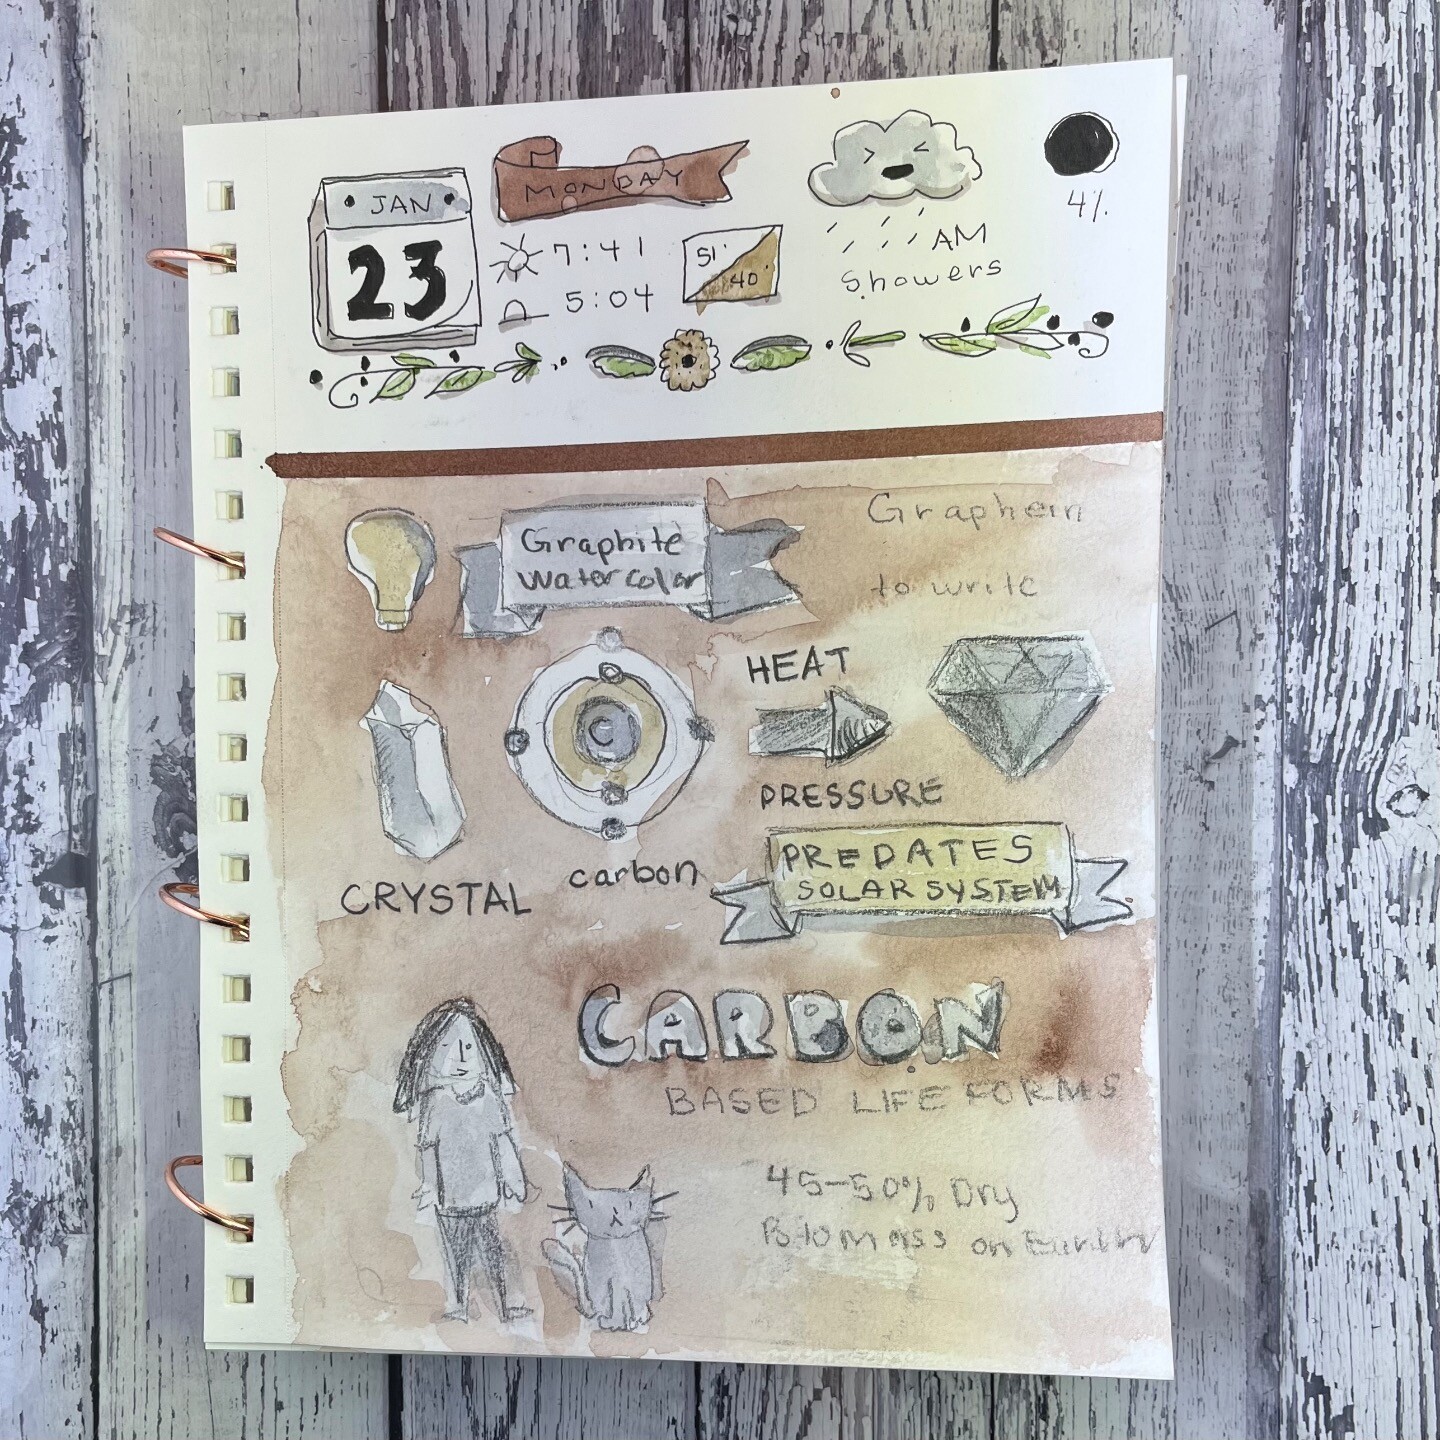 JAN
23
MONDAY
7:41
5:04
51°
40°
AM
Showers
4%
Graphite
watercolor
Graphein
to write
HEAT
PRESSURE
C
CRYSTAL
carbon
PREDATES
SOLAR SYSTEM
CARBON
BASED LIFE FORMS
45-50% Dry
Biomass on Earth